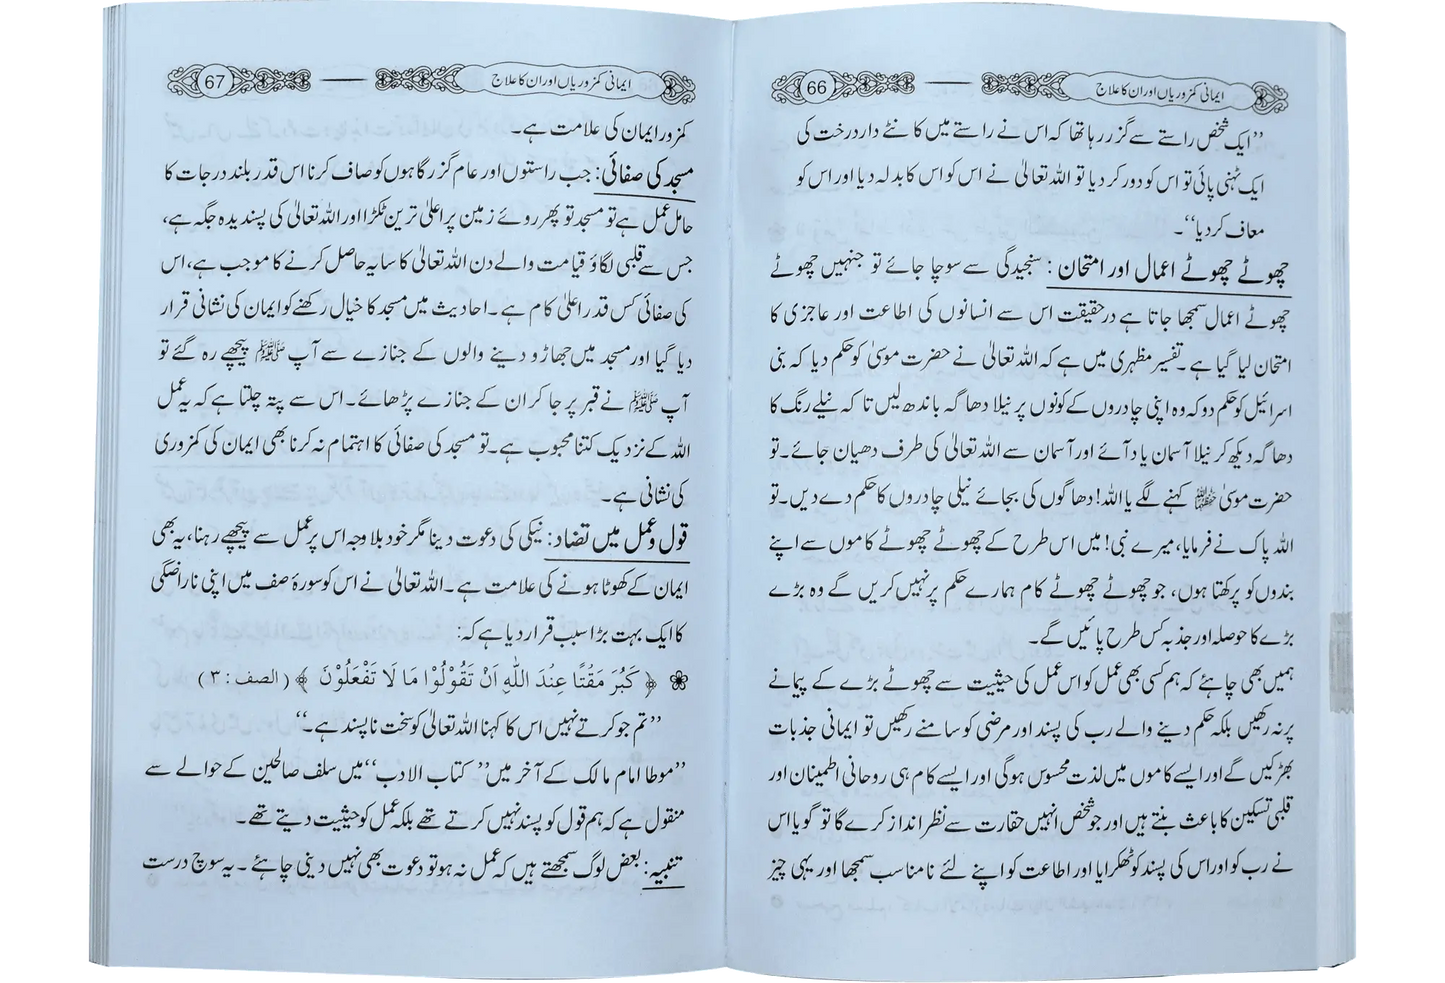 ایمانی کمزوریاں اور ان کا علاج 66
”ایک شخص راستے سے گزر رہا تھا کہ اس نے راستے میں کانٹے دار درخت کی
ایک ٹہنی پائی تو اس کو دور کر دیا تو اللہ تعالیٰ نے اس کو اس کا بدلہ دیا اور اس کو
معاف کر دیا“۔
چھوٹے چھوٹے اعمال اور امتحان: سنجیدگی سے سوچا جائے تو جنہیں چھوٹے
چھوٹے اعمال سمجھا جاتا ہے درحقیقت اس سے انسانوں کی اطاعت اور عاجزی کا
امتحان لیا گیا ہے۔ تفسیر مظہری میں ہے کہ اللہ تعالیٰ نے حضرت موسیٰ کو حکم دیا کہ بنی
اسرائیل کو حکم دو کہ وہ اپنی چادروں کے کونوں پر نیلا دھاگہ باندھ لیں تا کہ نیلے رنگ کا
دھاگہ دیکھ کر نیلا آسمان یاد آئے اور آسمان سے اللہ تعالیٰ کی طرف دھیان جائے۔ تو
حضرت موسیٰ کہنے لگے یا اللہ! دھاگوں کی بجائے نیلی چادروں کا حکم دے دیں۔ تو
اللہ پاک نے فرمایا، میرے نبی! میں اس طرح کے چھوٹے چھوٹے کاموں سے اپنے
بندوں کو پرکھتا ہوں، جو چھوٹے چھوٹے کام ہمارے حکم پر نہیں کریں گے وہ بڑے
بڑے کا حوصلہ اور جذبہ کس طرح پائیں گے۔
ہمیں بھی چاہئے کہ ہم کسی بھی عمل کو اس عمل کی حیثیت سے چھوٹے بڑے کے پیمانے
پر نہ رکھیں بلکہ حکم دینے والے رب کی پسند اور مرضی کو سامنے رکھیں تو ایمانی جذبات
بھڑکیں گے اور ایسے کاموں میں لذت محسوس ہوگی اور ایسے کام ہی روحانی اطمینان اور
قلبی تسکین کا باعث بنتے ہیں اور جو شخص انہیں حقارت سے نظر انداز کرے گا تو گویا اس
نے رب کو اور اس کی پسند کو ٹھکرایا اور اطاعت کو اپنے لئے نامناسب سمجھا اور یہی چیز
ایمانی کمزوریاں اور ان کا علاج 67
کمزور ایمان کی علامت ہے۔
مسجد کی صفائی: جب راستوں اور عام گزر گاہوں کو صاف کرنا اس قدر بلند درجات کا
حامل عمل ہے تو مسجد تو پھر روئے زمین پر اعلیٰ ترین ٹکڑا اور اللہ تعالیٰ کی پسندیدہ جگہ ہے،
جس سے قلبی لگاؤ قیامت والے دن اللہ تعالیٰ کا سایہ حاصل کرنے کا موجب ہے، اس
کی صفائی کس قدر اعلیٰ کام ہے۔ احادیث میں مسجد کا خیال رکھنے کو ایمان کی نشانی قرار
دیا گیا اور مسجد میں جھاڑو دینے والوں کے جنازے سے آپ ﷺ پیچھے رہ گئے تو
آپ ﷺ نے قبر پر جا کر ان کے جنازے پڑھائے۔ اس سے پتہ چلتا ہے کہ یہ عمل
اللہ کے نزدیک کتنا محبوب ہے۔ تو مسجد کی صفائی کا اہتمام نہ کرنا بھی ایمان کی کمزوری
کی نشانی ہے۔
قول و عمل میں تضاد: نیکی کی دعوت دینا مگر خود بلا وجہ اس پر عمل سے پیچھے رہنا، یہ بھی
ایمان کے کھوٹا ہونے کی علامت ہے۔ اللہ تعالیٰ نے اس کو سورۂ صف میں اپنی ناراضگی
کا ایک بہت بڑا سبب قرار دیا ہے کہ:
❀ ﴿ كَبُرَ مَقْتًا عِنْدَ اللّٰهِ اَنْ تَقُوْلُوْا مَا لَا تَفْعَلُوْنَ ﴾ (الصف: ۳)
”تم جو کرتے نہیں اس کا کہنا اللہ تعالیٰ کو سخت ناپسند ہے۔“
”موطا امام مالک کے آخر میں” کتاب الادب“ میں سلف صالحین کے حوالے سے
منقول ہے کہ ہم قول کو پسند نہیں کرتے تھے بلکہ عمل کو حیثیت دیتے تھے۔
تنبیہ: بعض لوگ سمجھتے ہیں کہ عمل نہ ہو تو دعوت بھی نہیں دینی چاہئے۔ یہ سوچ درست